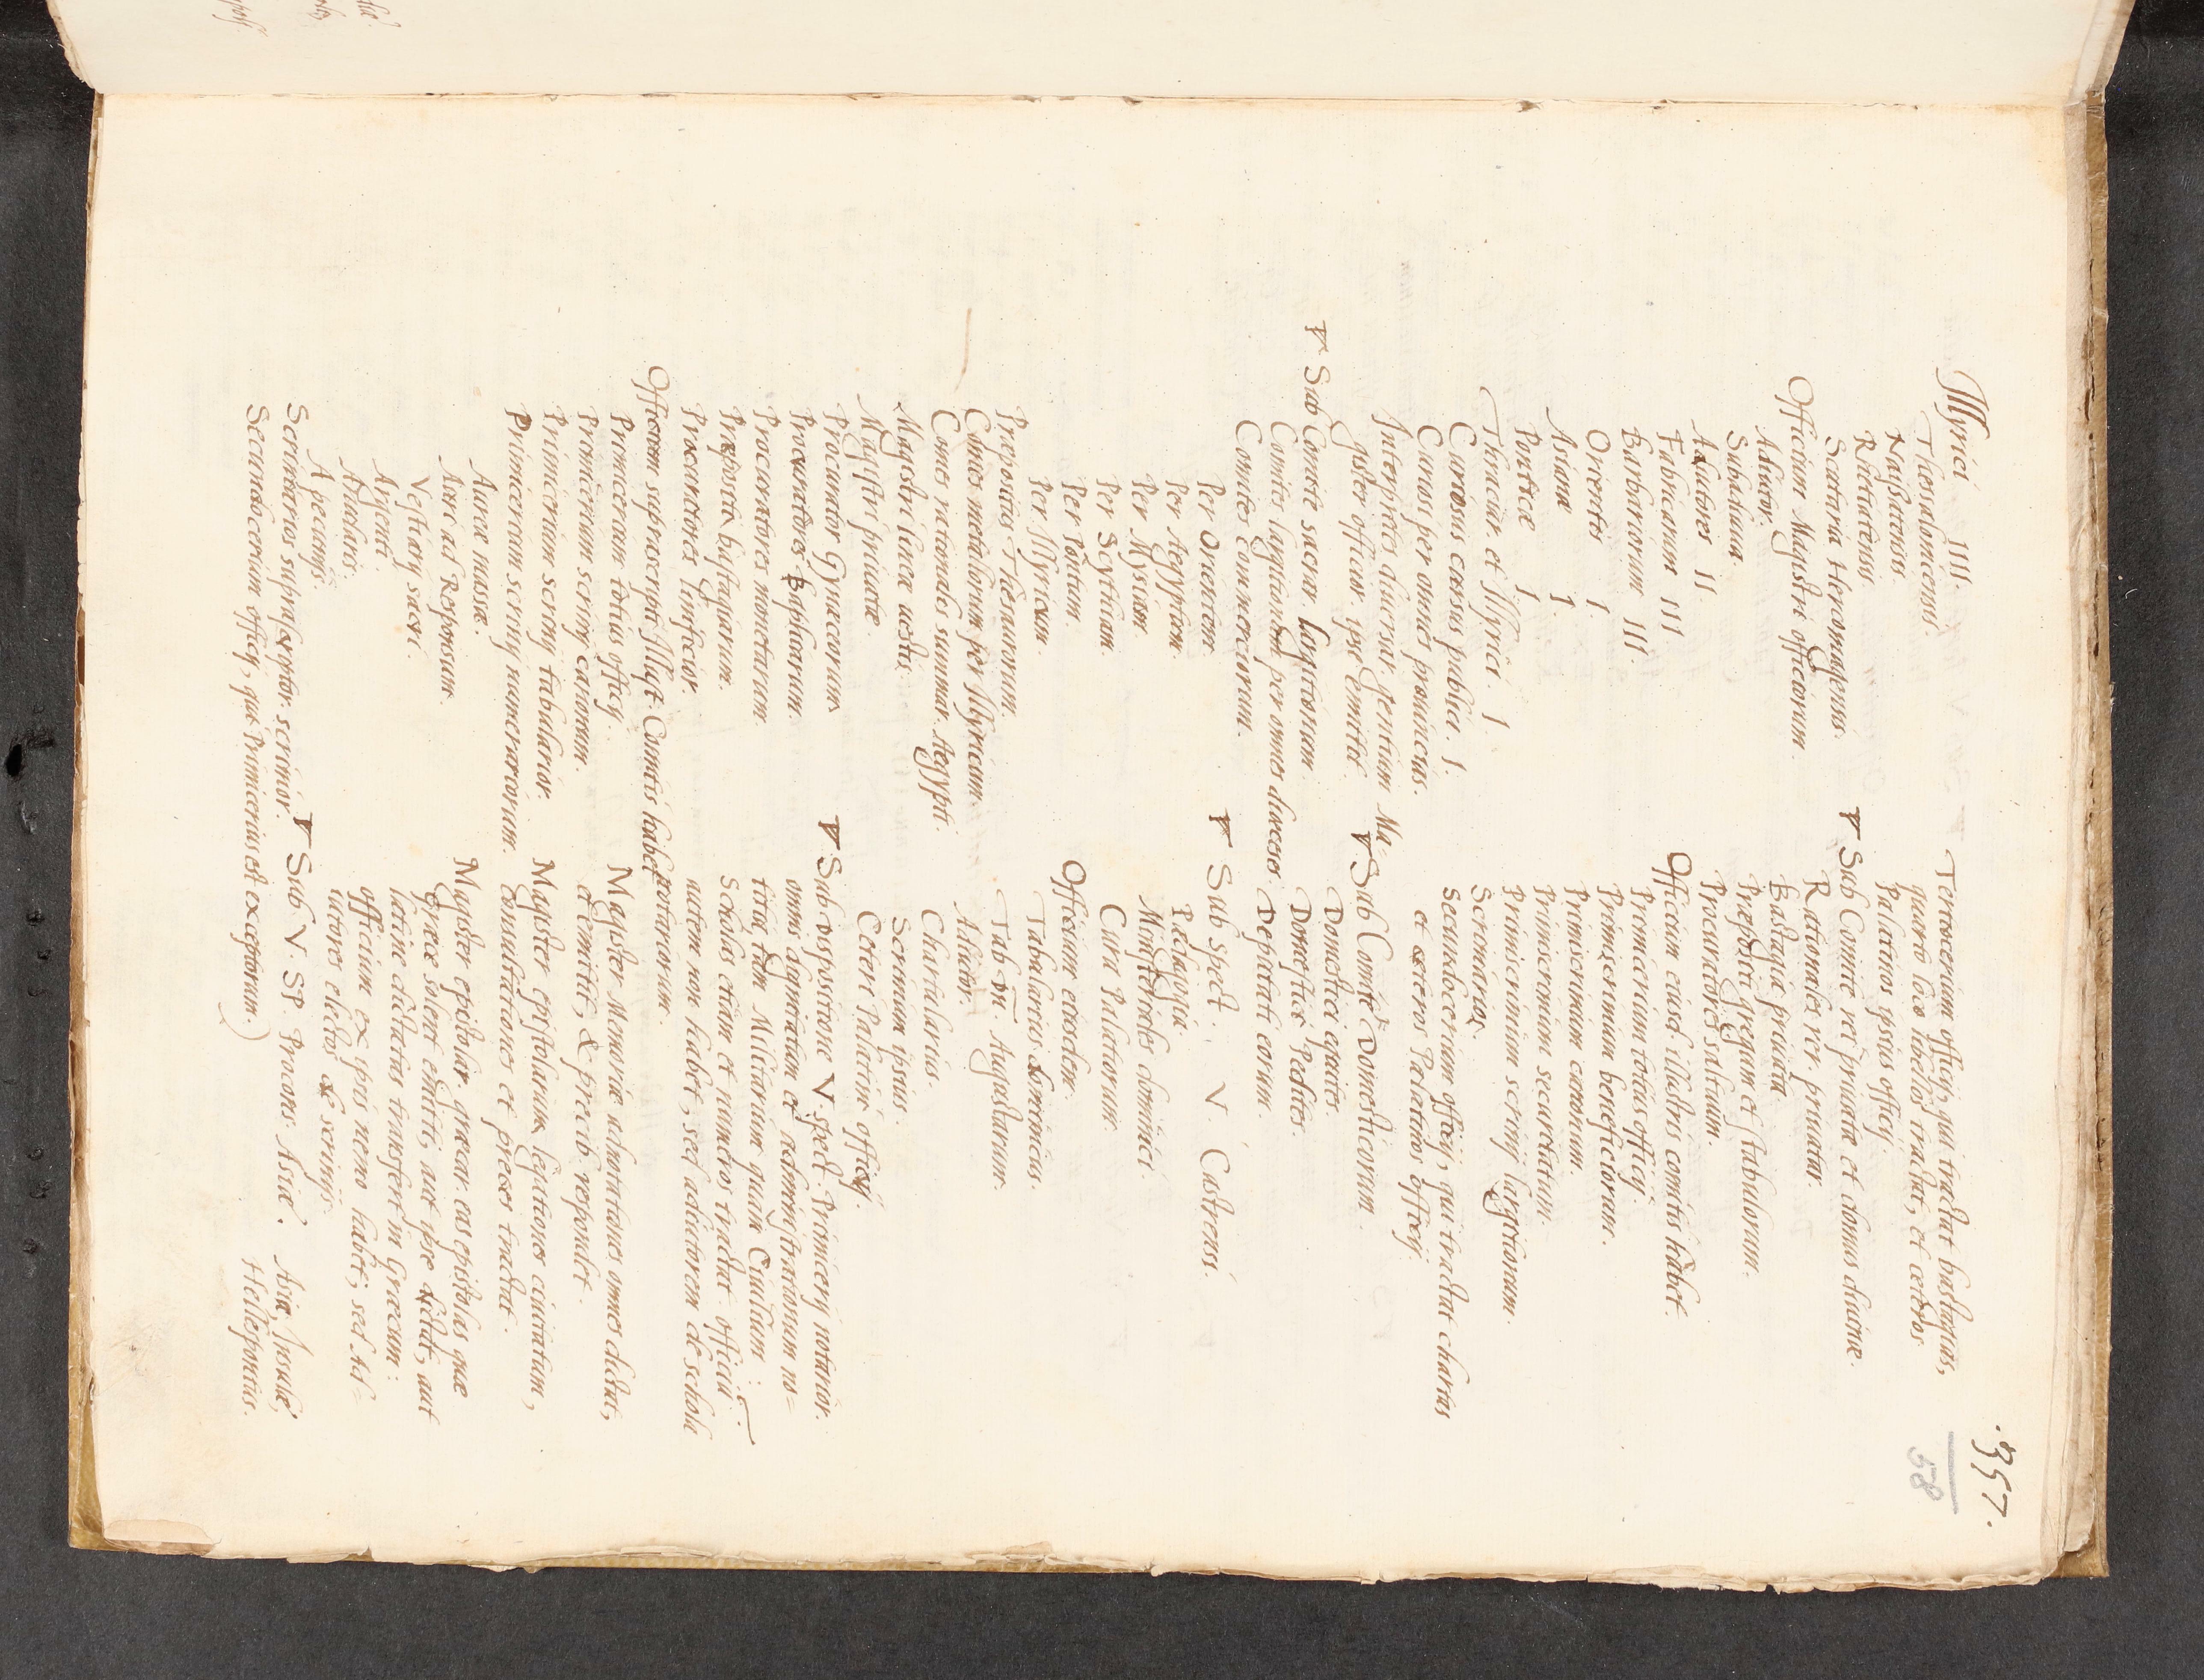 .357.
58
Illyrici IIII.
Thessalonicensis.
Naissatensis.
Ratiatensis.
Scutaria Heromagensis.
Officium Magistri officiorum.
Adiutor.
Subadiuua.
Adiutores II
Fabricarum III
Barbaricarum III.
Orientis I.
Asiana I.
Ponticæ I
Thraciar. et Illyrici. I
Curiosus cursus publici. I.
Curiosi per omnes prouincias.
Interpretes diuersar. gentium Ma-
gister officior. ipse emittit.
Sub Comite sacrar. largitionum.
Comites largitionum per omnes dioeceses.
Comites commerciorum.
Per Orientem.
Per Aegyptum.
Per Mysiam.
Per Scythiam.
Per Pontum.
Per Illyricum.
Præpositos Thesaurorum.
Comes metallorum per Illyricum.
Comes rationales summar. Aegypti.
Magistri lineæ uestis.
Magistri priuatæ.
Procurator Gynæcorum.
Procuratores Baphiorum.
Procuratores monetarum.
Præpositi bastagarum.
Procuratores linificior.
Officium suprascripti Illust. Comitis habet
Primicerium totius officij.
Primicerium scrinij canonum.
Primicerium scrinij tabularior.
Primicerium scrinij numerariorum.
Aureæ massæ.
Auri ad Responsum.
Vestiarij sacri.
Argenti.
Annularis.
A pecunijs.
Scriniarios suprascriptor. scrinior.
Secundocerium officij, qui Primicerius est exceptorum.)
Tertiocerium officij, qui tractat bastagas,
quarto loco libellos tractat, et ceteros
Palatinos ipsius officij.
Sub Comite rei priuatæ et domus diuinæ.
Rationales rer. priuatar.
Bastaga priuata
Præpositi gregum et stabulorum.
Procuratores saltuum.
Officium eiusd. illustris comitis habet.
Primicerium totius officij.
Primicerium beneficiorum.
Primicerium canonum.
Primicerium securitatum.
Primicerium scrinij largitionum.
Scriniarios.
Secundocerium officij, qui tractat chartas
et ceteros Palatinos officij.
Sub Comite Domesticorum.
Domestici equites.
Domestici Pedites.
Deputati eorum.
Sub spect. V. Castrensi.
Pædagogia.
Ministeriales dominici.
Cura Palatiorum.
Officium eiusdem.
Tabularius dominicus.
Tab m̄. Augustarum.
Adiutor.
Chartularius.
Scrinium ipsius.
Ceteri Palatini officij.
Sub dispositione V. spect. Primicerij notarior.
omnis dignitatum et administrationum no-
titia, tam Militarium quam Ciuilium:
scholas etiam et numeros tractat. officium
autem non habet, sed adiutorem de schola
notariorum.
Magister Memoriæ adnotationes omnes dictat,
et emittit, & precib. respondet.
Magister epistolarum legationes ciuitatum,
consultationes et preces tractat.
Magister epistolar. græcar. eas epistolas quæ
Græcè solent emitti, aut ipse dictat, aut
latinè dictatas transfert in Græcum:
officium ex ipsis nemo habet; sed ad-
iutores electos de scrinijs.
Sub V. SP. Procons. Asiæ. Asia, Insulæ,
Hellespontus.